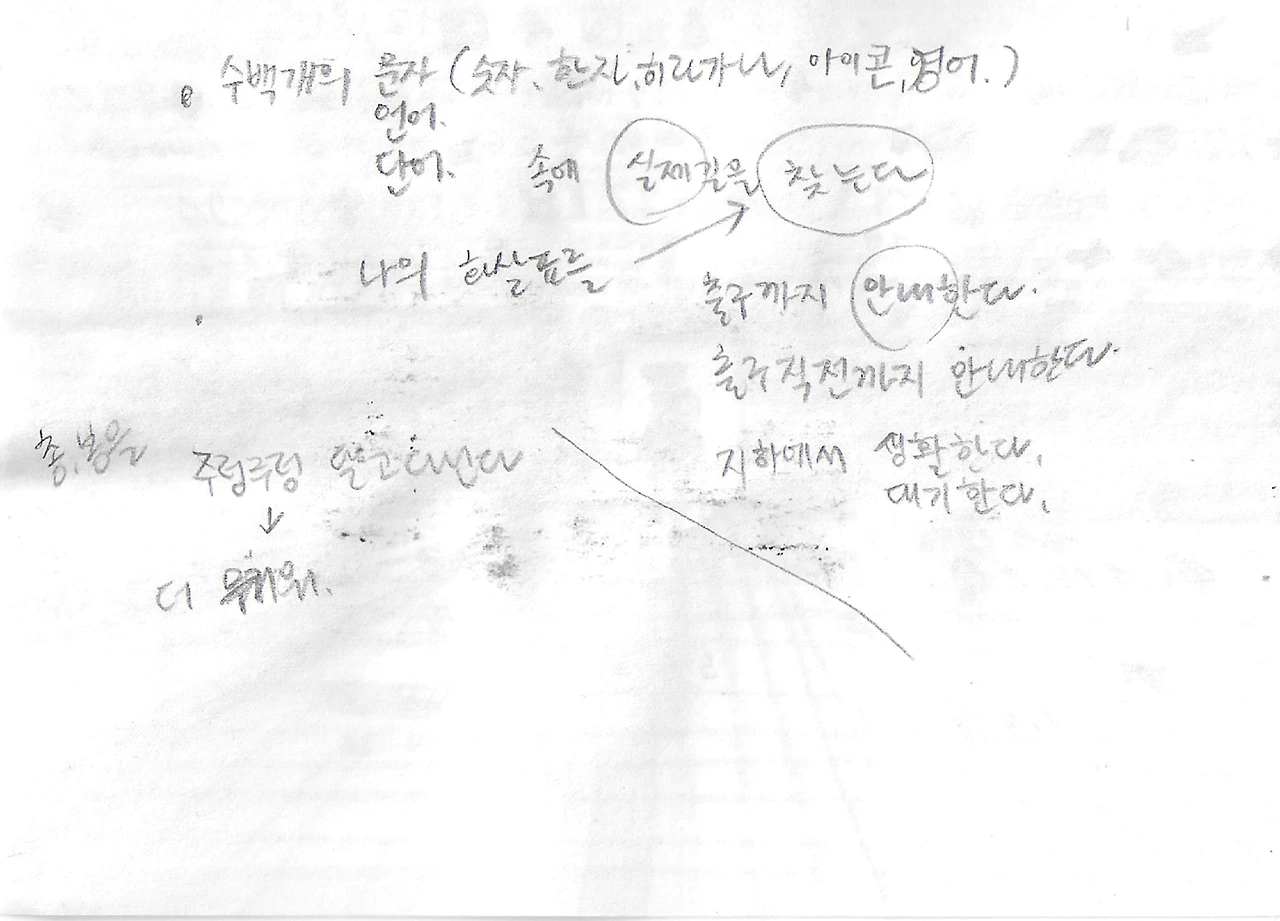 수백개의 문자 (숫자, 한자, 히라가나, 아이콘, 영어.)
언어.
단어. 속에 실제길을 찾는다
나의 화살표를
출구까지 안내한다.
출구직전까지 안내한다.
총, 봉을 주렁주렁 달고다닌다
지하에서 생활한다.
대기한다.
더